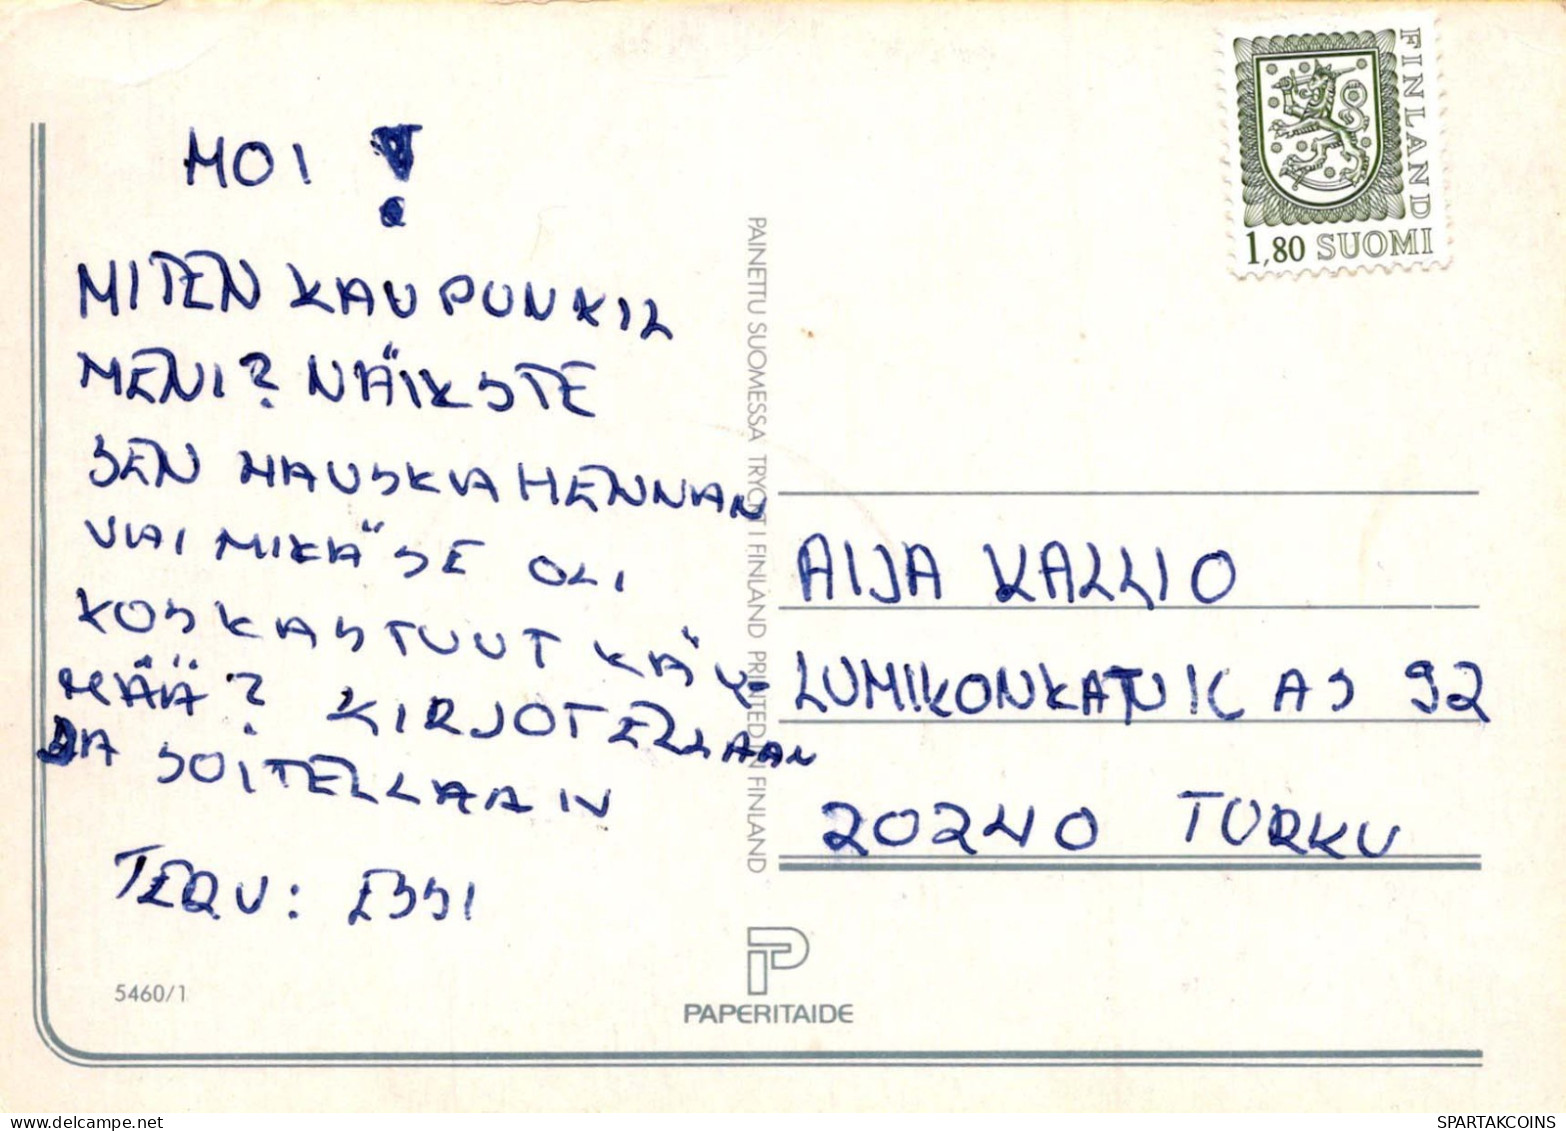 MOI!
MITEN KAUPUNKIL
MENI? NÄIKSTE
SEN HAUSKA HENNAN
VAI MIKÄ SE OLI
KOSKA STUUT KÄY
MÄÄ? KIRJOTELLAAN
JA SOITELLAAN
TERV: ESSI
5460/1
PAINETTU SUOMESSA TRYCKT I FINLAND PRINTED IN FINLAND
PAPERITAIDE
FINLAND
1,80 SUOMI
AIJA KALLIO
LUMIKONKATU 1C AS 92
20240 TURKU
SPARTAKCOINS
www.delcampe.net